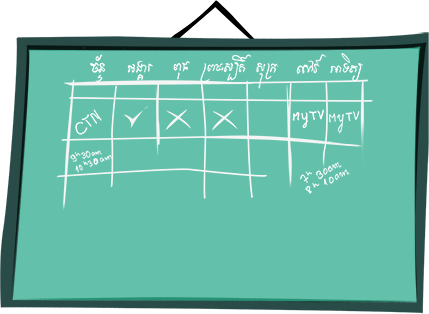 ច័ន្ទ អង្គារ ពុធ ព្រហស្បតិ៍ សុក្រ សៅរ៍ អាទិត្យ
CTN MYTV MYTV
9h 30am
10h 30am
7h 30am
8h 00am